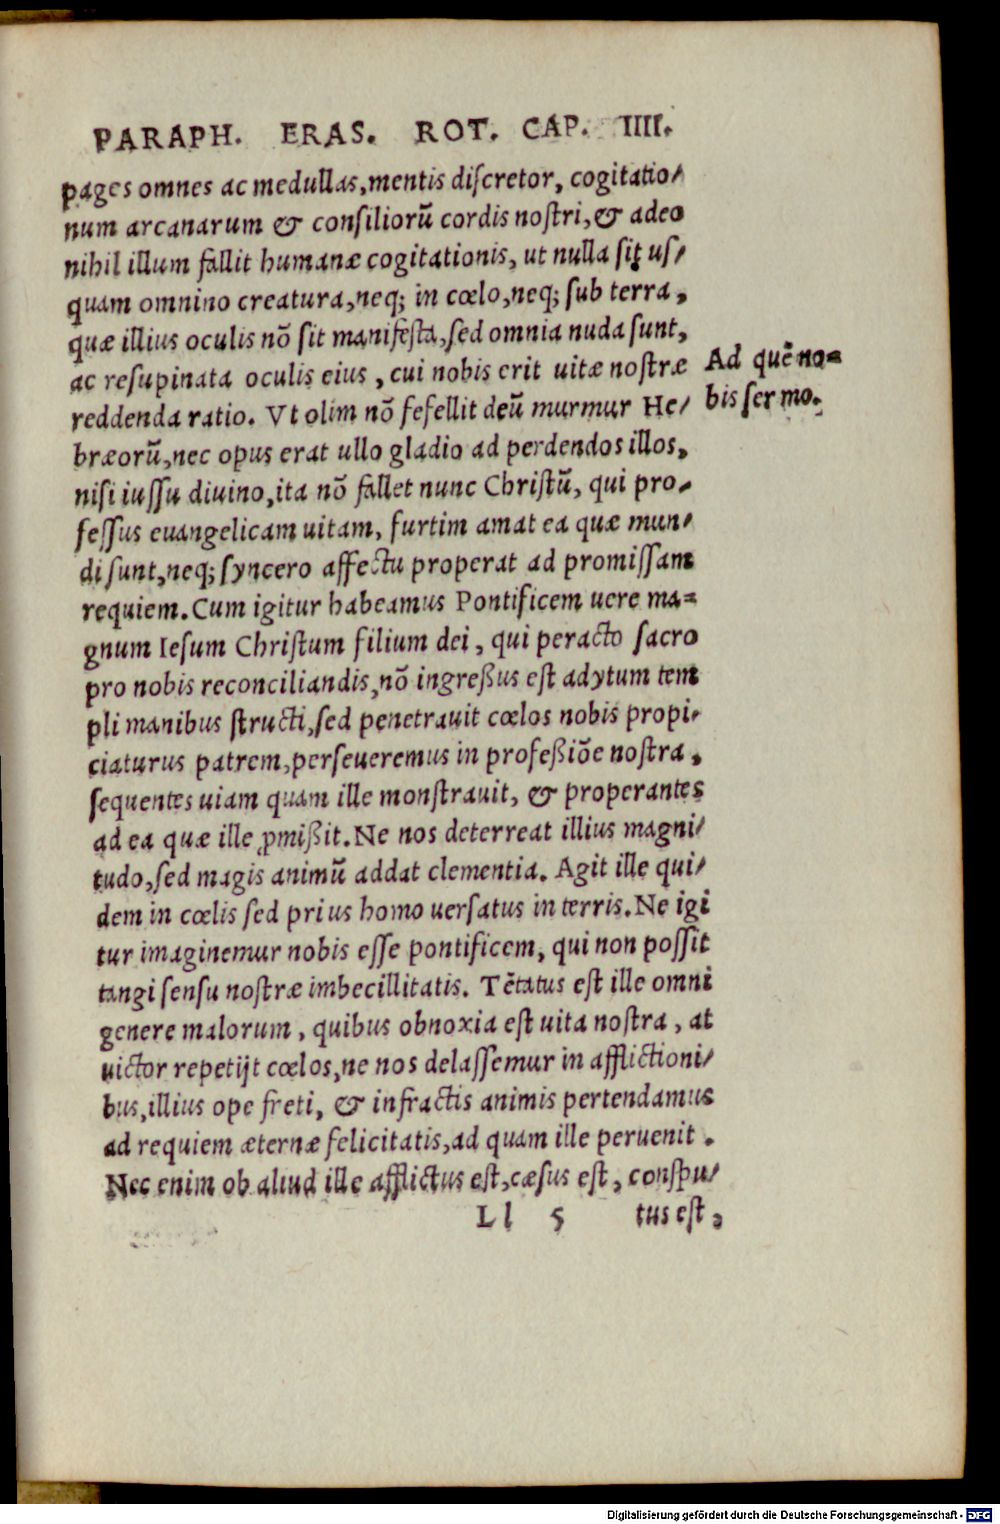 PARAPH. ERAS. ROT. CAP. IIII.
pages omnes ac medullas, mentis discretor, cogitatio/
num arcanarum & consiliorũ cordis nostri, & adeo
nihil illum fallit humanæ cogitationis, ut nulla sit us/
quam omnino creatura, neq; in cœlo, neq; sub terra,
quæ illius oculis nõ sit manifesta, sed omnia nuda sunt,
ac resupinata oculis eius, cui nobis erit uitæ nostræ
reddenda ratio. Vt olim nõ fefellit deũ murmur He/
Ad quẽ no=
bis sermo.
bræorũ, nec opus erat ullo gladio ad perdendos illos,
nisi iussu diuino, ita nõ fallet nunc Christũ, qui pro/
fessus euangelicam uitam, furtim amat ea quæ mun/
di sunt, neq; syncero affectu properat ad promissam
requiem. Cum igitur habeamus Pontificem uere ma=
gnum Iesum Christum filium dei, qui peracto sacro
pro nobis reconciliandis, nõ ingreßus est adytum tem
pli manibus structi, sed penetrauit cœlos nobis propi/
ciaturus patrem, perseueremus in profeßiõe nostra,
sequentes uiam quam ille monstrauit, & properantes
ad ea quæ ille ꝓmißit. Ne nos deterreat illius magni/
tudo, sed magis animũ addat clementia. Agit ille qui/
dem in cœlis sed prius homo uersatus in terris. Ne igi
tur imaginemur nobis esse pontificem, qui non possit
tangi sensu nostræ imbecillitatis. Tẽtatus est ille omni
genere malorum, quibus obnoxia est uita nostra, at
uictor repetijt cœlos, ne nos delassemur in afflictioni/
bus, illius ope freti, & infractis animis pertendamus
ad requiem æternæ felicitatis, ad quam ille peruenit.
Nec enim ob aliud ille afflictus est, cæsus est, conspu/
Ll 5 tus est,
Digitalisierung gefördert durch die Deutsche Forschungsgemeinschaft - DFG